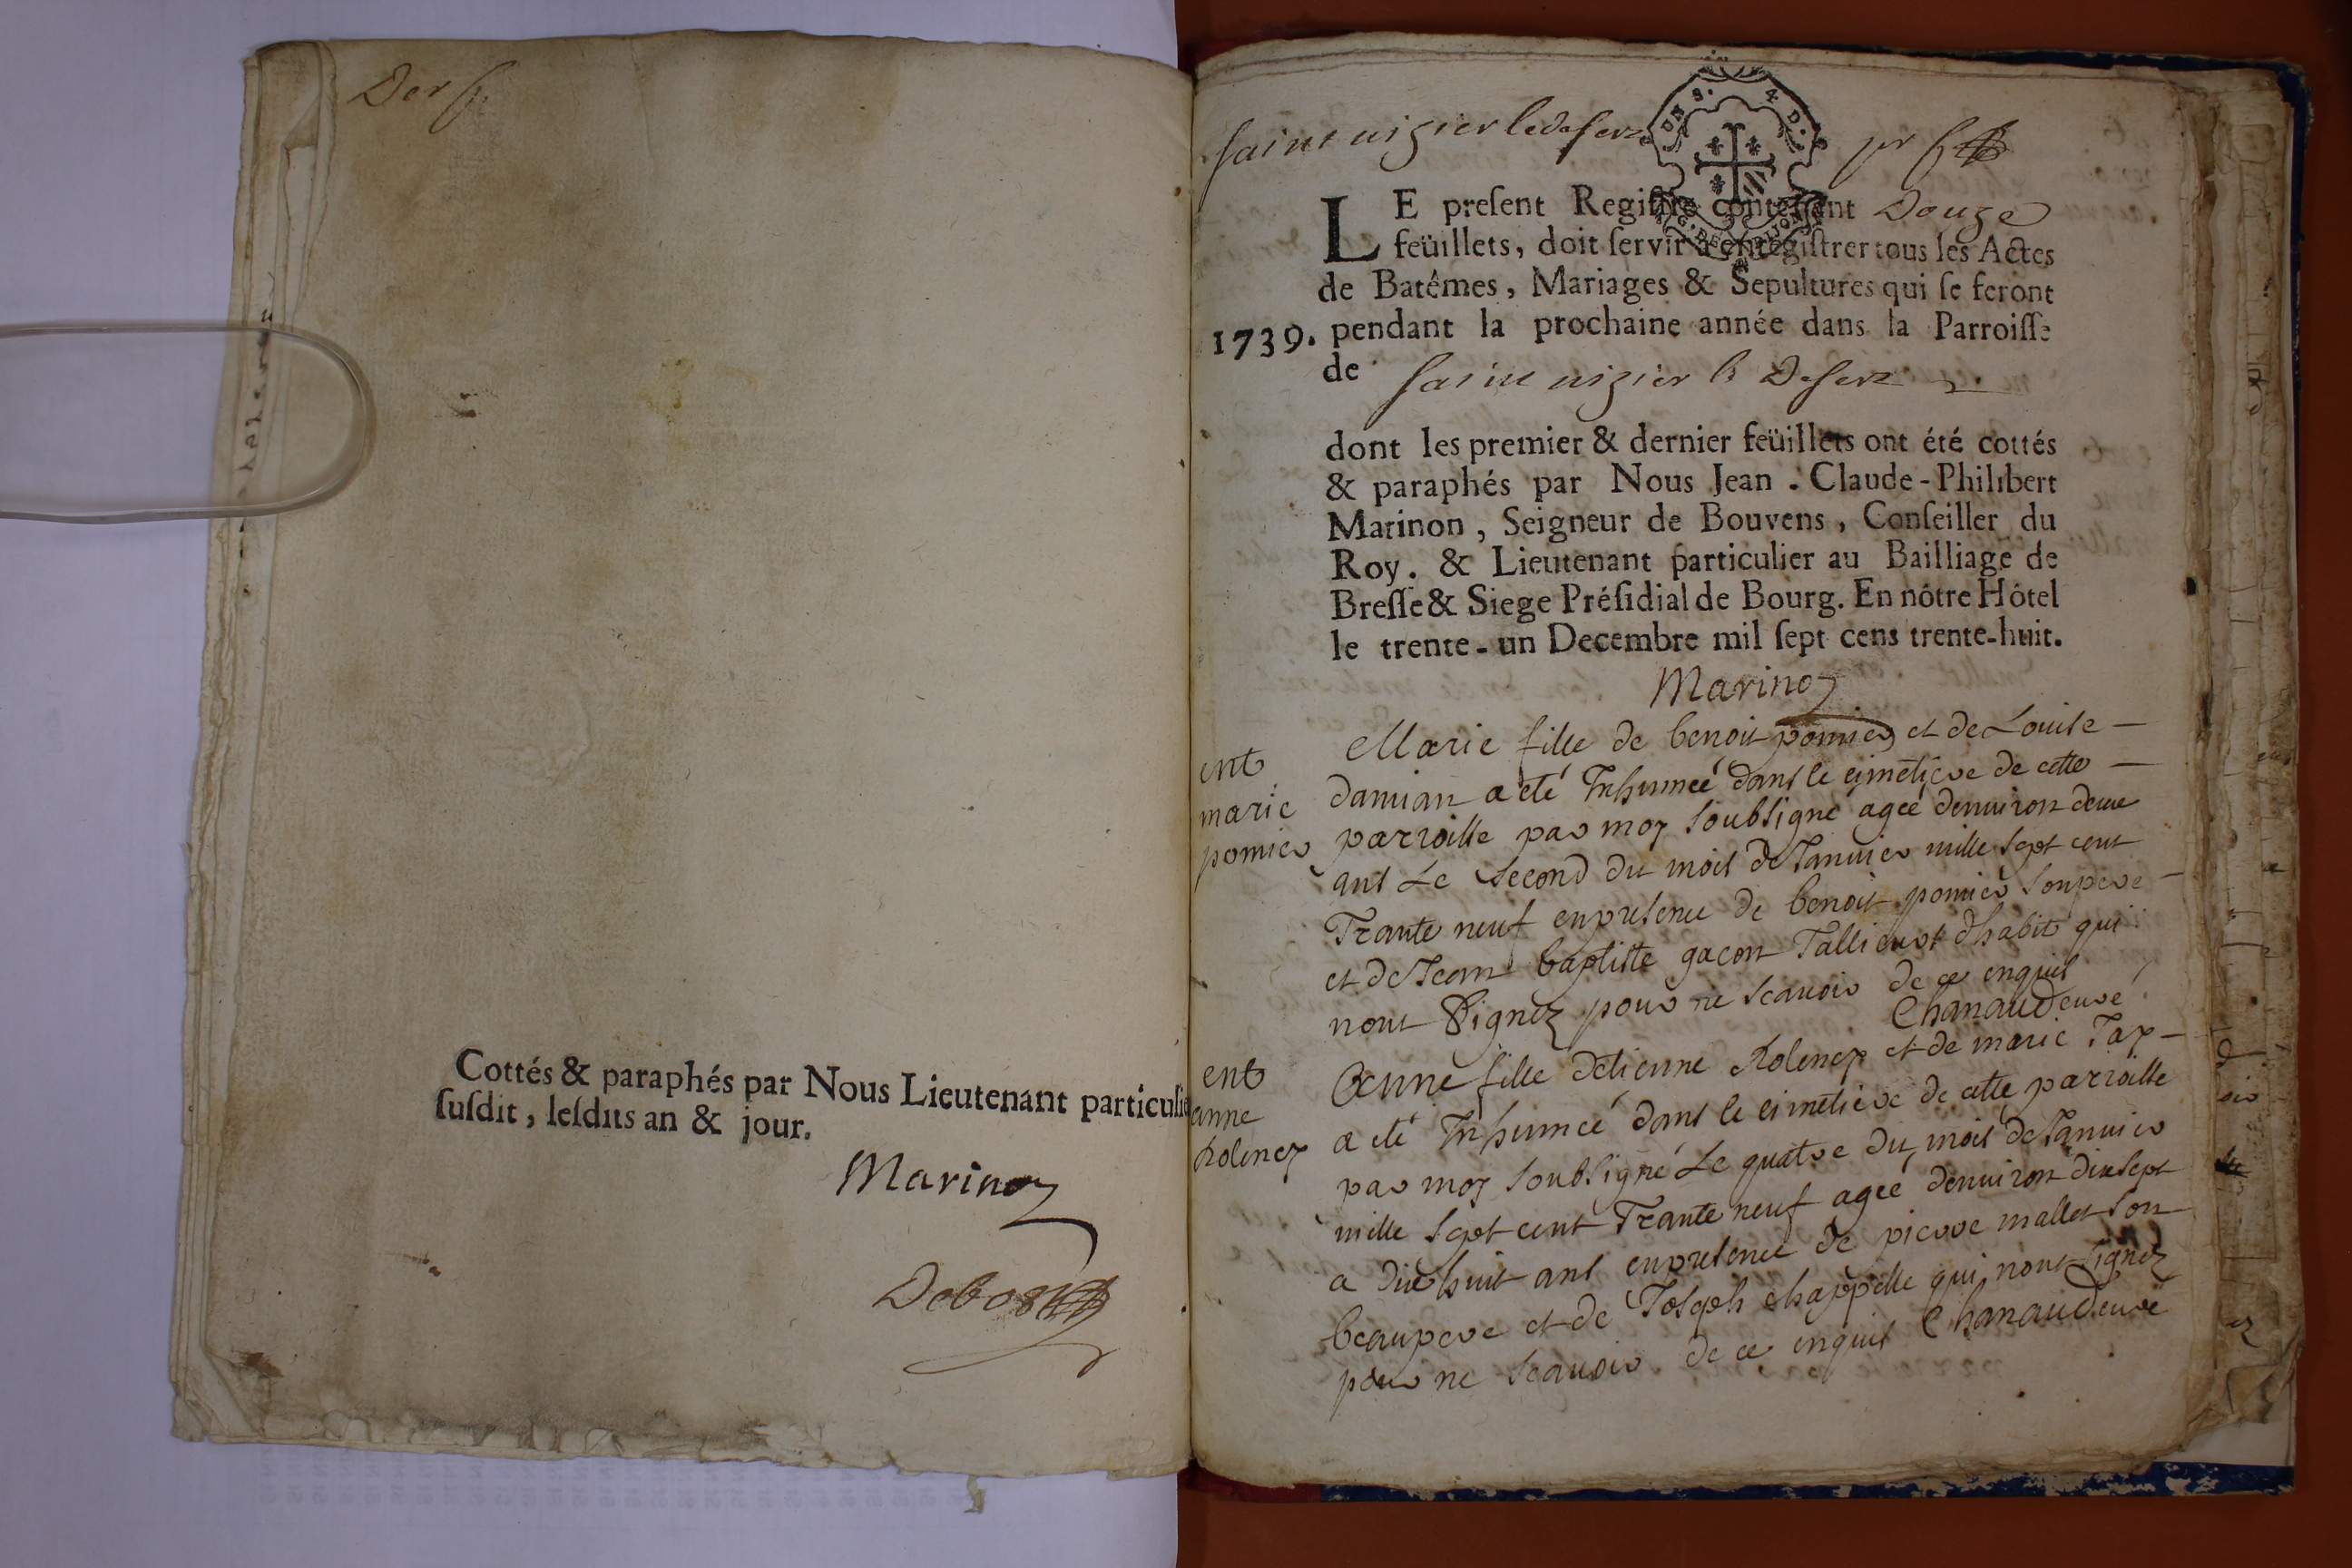 Der f
Cottés & paraphés par Nous Lieutenant particuli
susdit, lesdits an & jour.
Marinon
Debost
saint nizier le desert
pr f
LE present Registre contenant Douze
feüillets, doit servir à enregistrer tous les Actes
de Batêmes, Mariages & Sepultures qui se feront
1739. pendant la prochaine année dans la Parroisse
de saint nizier le Desert
dont les premier & dernier feüillets ont été cottés
& paraphés par Nous Jean-Claude-Philibert
Marinon, Seigneur de Bouvens, Conseiller du
Roy. & Lieutenant particulier au Bailliage de
Bresse & Siege Présidial de Bourg. En nôtre Hôtel
le trente-un Decembre mil sept cens trente-huit.
Marinon
ent
marie
pomier
Marie fille de benoit pomier et de Louise
damian a eté Inhumeé dans le cimetiere de cette
parroisse par moy soubsigné ageé denuiron deux
ans Le second du mois de Januier mille sept cent
Trante neuf en presence de benoit pomier son pere
et de Jean baptiste gacon Tallieur dhabit qui
nont Signez pour ne scauoir de ce enquis
Chanaudeuve
ent
anne
Rolency
Anne fille detienne Rolency et de marie Jay
a eté Inhumeé dans le cimetiere de cette parroisse
par moy soubsigné Le quatre du mois de Januier
mille sept cent Trante neuf ageé denuiron dix sept
a dix huit ans en presence de pierre mallet son
beaupere et de Joseph chappelle qui nont signez
pour ne scauoir de ce enquis Chanaudeuve